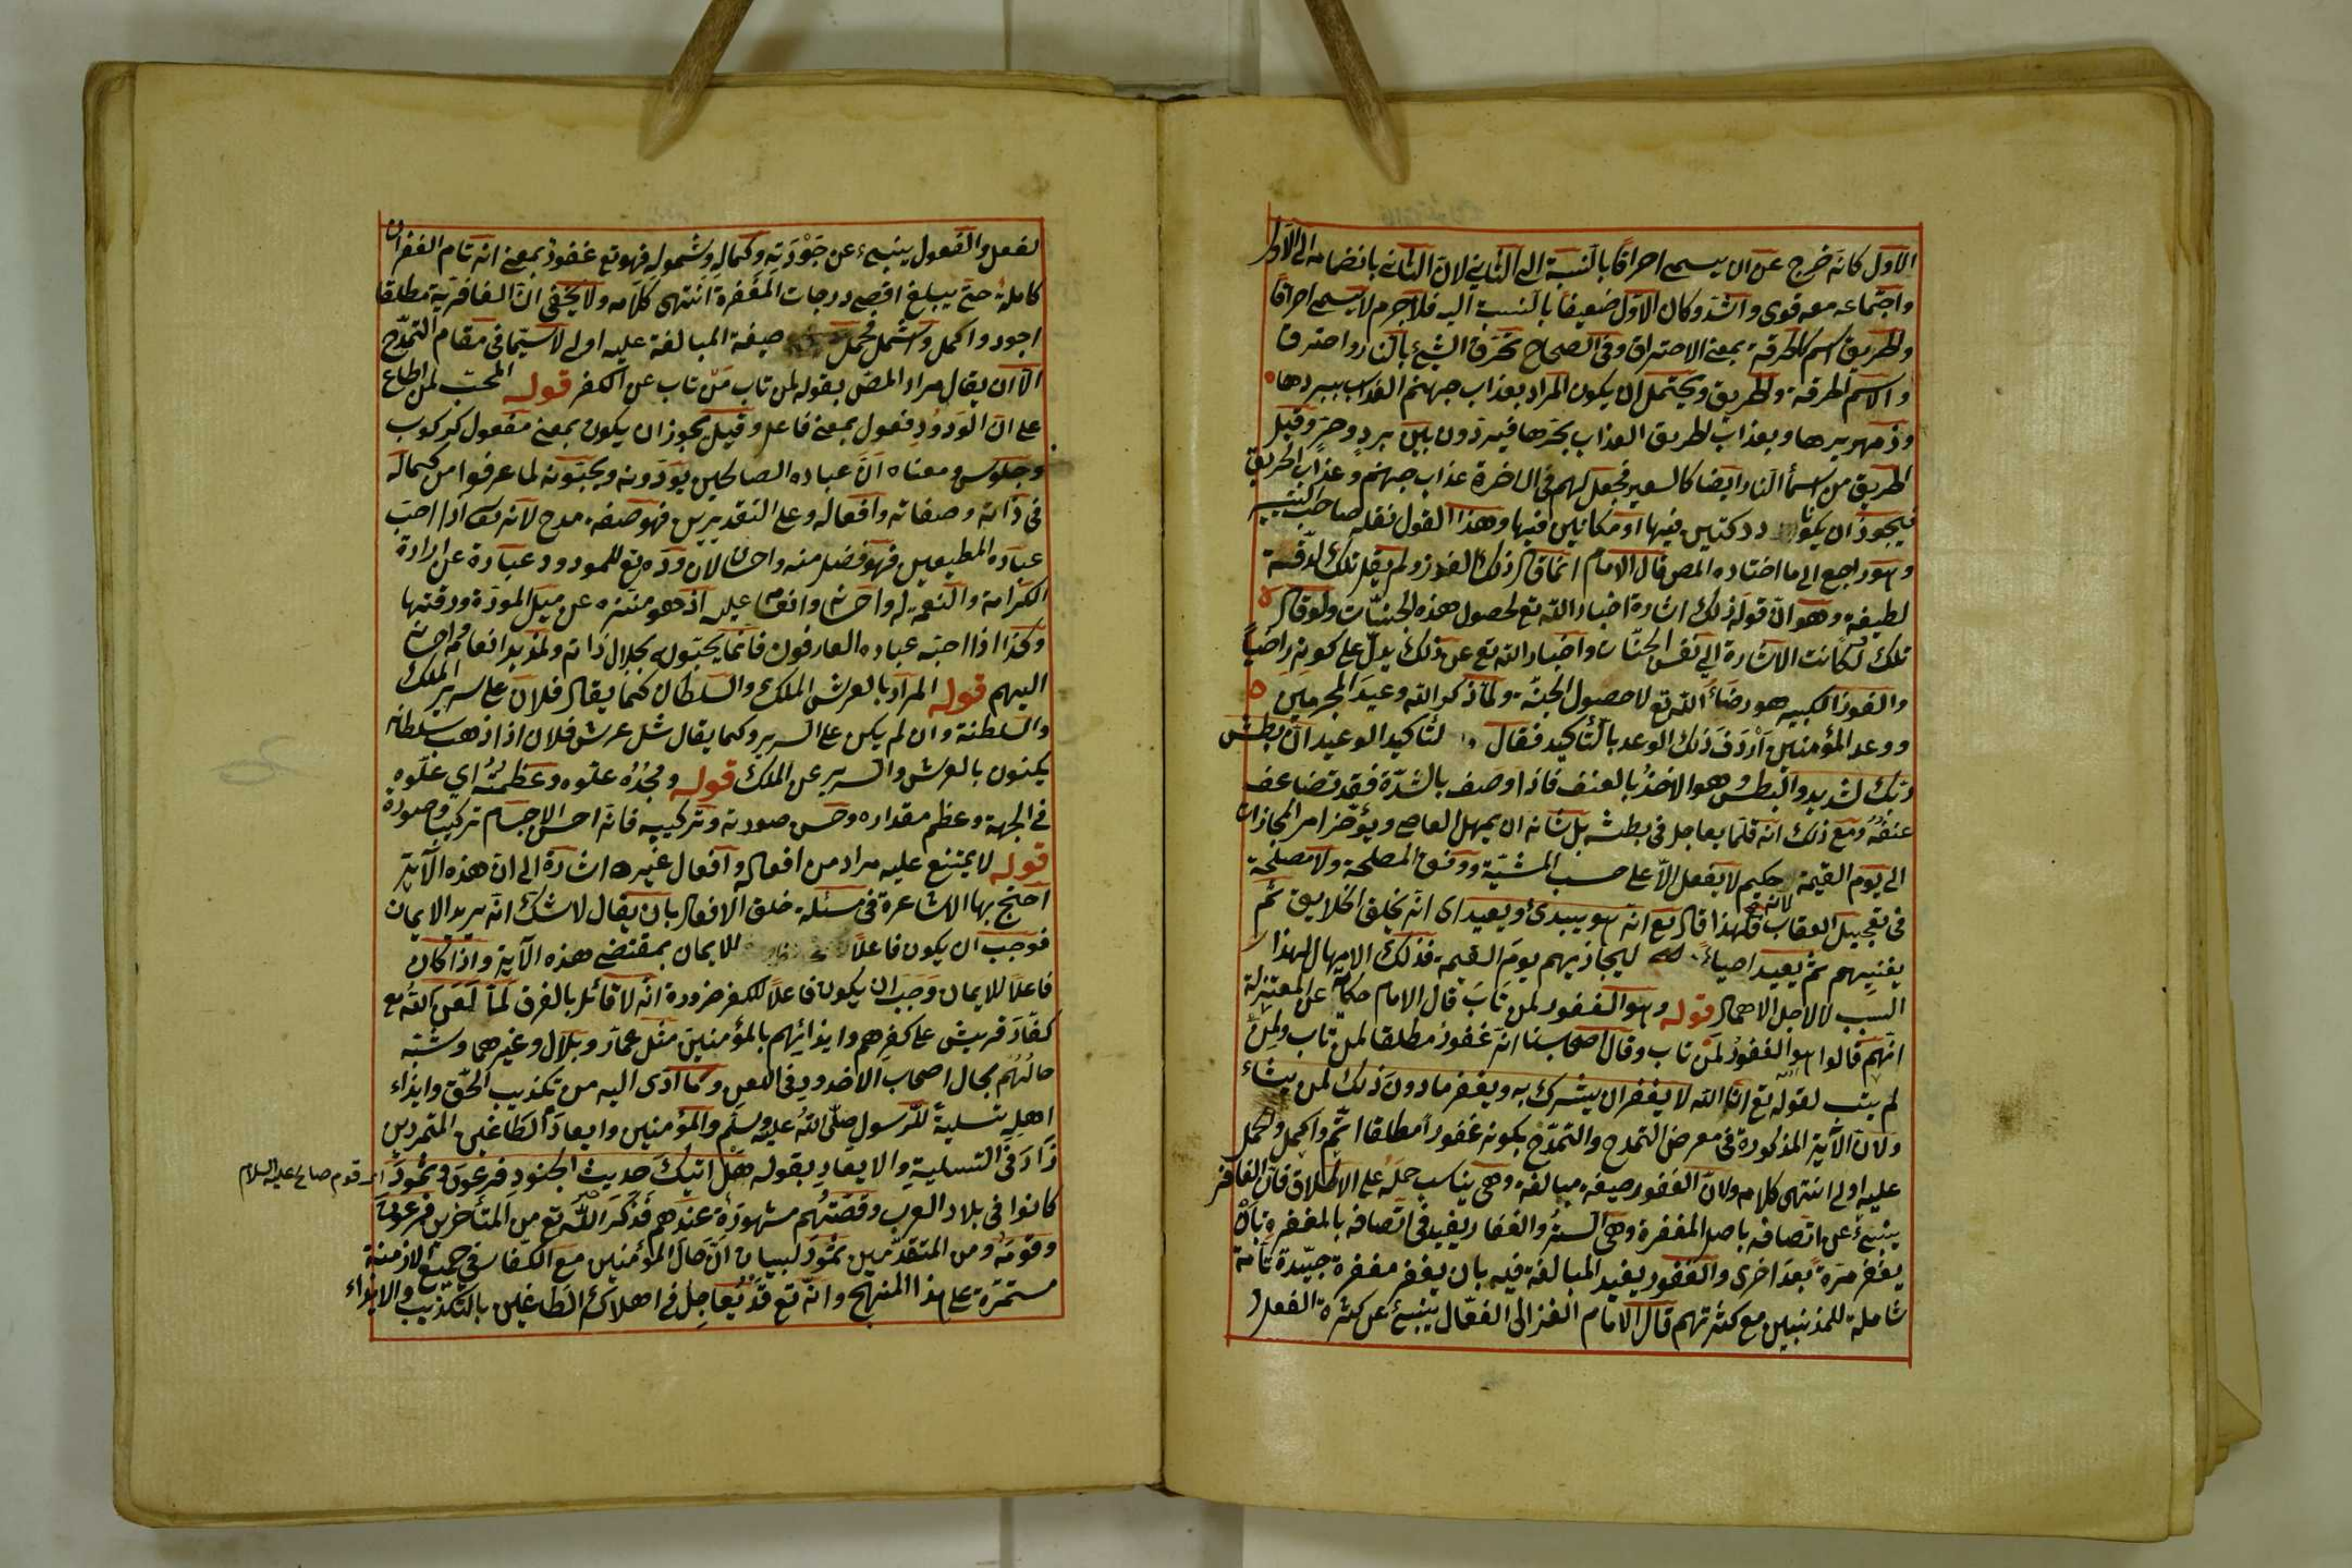 الاول كانه خرج عن ان يسمى احراقا بالنسبة الى الثاني لان الثاني بانضمامه الى الاول
واجتماعه معه قوى واشد وكان الاول ضعيفا بالنسبة اليه فلا جرم لا يسمى احراقا
والحريق اسم كالحرقة بمعنى الاحتراق وفى الصحاح تحرق الشئ بالنار واحترق
والاسم الحرقة والحريق ويحتمل ان يكون المراد بعذاب جهنم العذاب ببردها
وزمهريرها وبعذاب الحريق العذاب بحرها فيرددون بين برد وحر وقيل
الحريق من اسماء النار ايضا كالسعير فجعل لهم فى الاخرة عذاب جهنم وعذاب الحريق
فيجوز ان يكونا دركتين فيها او مكانين فيها وهذا القول نقله صاحب
وهو راجع الى ما اختاره المص قال الامام انما قال ذلك الفوز ولم يقل تلك لدقيقة
لطيفة وهو ان قوله ذلك اشارة اخبار الله تع لحصول هذه الجنات ولو قال
تلك لكانت الاشارة الى نفس الجنات واخبار الله تع عن ذلك يدل على كونه راضيا
والفوز الكبير هو رضاء الله تع لا حصول الجنة ولما ذكر الله وعيد المجرمين
ووعد المؤمنين اردف ذلك الوعد بالتأكيد فقال لتأكيد الوعيد ان بطش
ربك لشديد والبطش هو الاخذ بالعنف فاذا وصف بالشدة فقد تضاعف
عنفه ومع ذلك انه قلما يعاجل فى بطشه بل شانه ان يمهل العاصى ويؤخر امر المجازاة
الى يوم القيمة حكيم لا يفعل الا على حسب المشية ووفق المصلحة ولا مصلحة
لانه تع
فى تعجيل العقاب فلهذا قال تع انه هو يبدئ ويعيد اى انه يخلق الخلايق ثم
يفنيهم ثم يعيد احياء ليجازيهم يوم القيمة فذلك الامهال لهذا
السبب لا لاجل الاهمال قوله وهو الغفور لمن تاب قال الامام حكاية عن المعتزلة
انهم قالوا هو الغفور لمن تاب وقال اصحابنا انه غفور مطلقا لمن تاب ولمن
لم يتب لقوله تع ان الله لا يغفر ان يشرك به ويغفر ما دون ذلك لمن يشاء
ولان الآية المذكورة فى معرض التمدح والتمدح بكونه غفورا مطلقا اتم واكمل والحمل
عليه اولى انتهى كلامه ولان الغفور صيغة مبالغة وهى يناسب حمله على الاطلاق فان الغافر
ينبئ عن اتصافه باصل المغفرة وهى الستر والغفار يفيد فى اتصافه بالمغفرة بان
يغفر مرة بعد اخرى والغفور يفيد المبالغة فيه بان يغفر مغفرة جيدة تامة
شاملة للمذنبين مع كثرتهم قال الامام الغزالى الفعال ينبئ عن كثرة الفعل
لفعل والفعول ينبىء عن جودته وكماله وشموله فهو تع غفور بمعنى انه تام الغفران
كاملة حتى يبلغ اقصى درجات المغفرة انتهى كلامه ولا يخفى ان الغافرية مطلقا
اجود واكمل واشمل فحمل صيغة المبالغة عليه اولى لا سيما فى مقام التمدح
الا ان يقال مراد المص بقوله لمن تاب من تاب عن الكفر قوله المحب لمن اطاع
على ان الودود فعول بمعنى فاعل وقيل يجوز ان يكون بمعنى مفعول كركوب
وحلوب ومعناه ان عباده الصالحين يودونه ويحبونه لما عرفوا من كماله
فى ذاته وصفاته وافعاله وعلى التقديرين فهو صفة مدح لانه تعا اذا احب
عباده المطيعين فهو فضل منه واحسان لان وده تع للمودود عبارة عن ارادة
الكرامة والنعمة له واحسانه وانعامه عليه اذ هو منزه عن ميل المودة ورقتها
وكذا اذا احبه عباده العارفون فانما يحبونه بجلال ذاته ولمزيد انعامه واحسانه
اليهم قوله المراد بالعرش الملك والسلطان كما يقال فلان على سرير الملك
والسلطنة وان لم يكن على السرير وكما يقال ثل عرش فلان اذا ذهب سلطانه
يكنون بالعرش والسرير عن الملك قوله ومجده علوه وعظمته اي علوه
فى الجهة وعظم مقداره وحسن صورته وتركيبه فانه احسن الاجسام تركيبا وصورة
قوله لا يمتنع عليه مراد من افعاله وافعال غيره اشارة الى ان هذه الآية
احتج بها الاشاعرة فى مسئلة خلق الافعال بان يقال لا شك انه يريد الايمان
فوجب ان يكون فاعلا للايمان بمقتضى هذه الآية واذا كان
فاعلا للايمان وجب ان يكون فاعلا للكفر ضرورة انه لا قائل بالفرق لما لعن الله تع
كفار قريش على كفرهم وايذائهم بالمؤمنين مثل عمار وبلال وغيرهما وشبه
حالهم بحال اصحاب الاخدود فى اللعن وما ادى اليه من تكذيب الحق وايذاء
اهله تسلية للرسول صلى الله عليه وسلم والمؤمنين وايعاد الطاغين المتمردين
زاد فى التسلية والايعاد بقوله هل اتيك حديث الجنود فرعون وثمود
قوم صالح عليه السلام
كانوا فى بلاد العرب وقصتهم مشهورة عندهم فذكر الله تع من المتأخرين فرعون
وقومه ومن المتقدمين ثمود لبيان ان حال المؤمنين مع الكفار فى جميع الازمنة
مستمرة على هذا المنهج وانه تع قد يعاجل فى اهلاك الطاغين بالتكذيب والايذاء